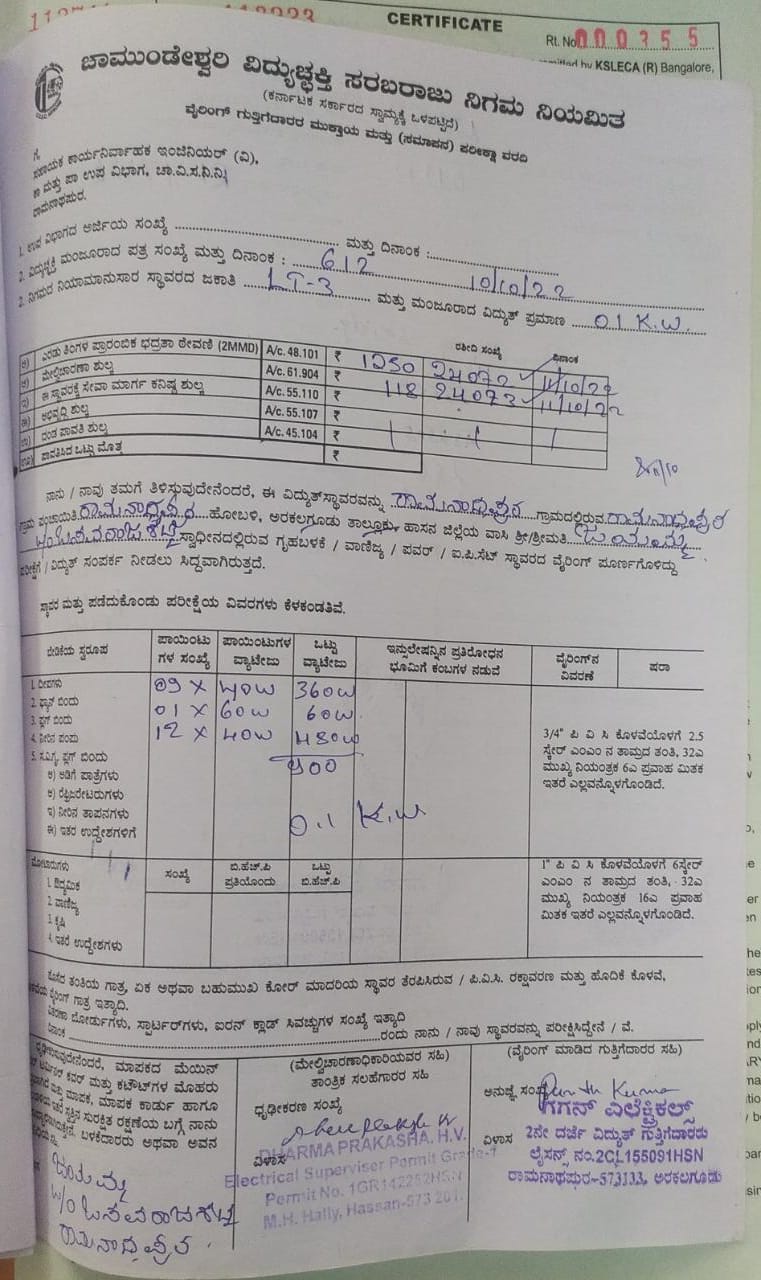 CERTIFICATE
Rt. No 000355
by KSLECA (R) Bangalore,
ಚಾಮುಂಡೇಶ್ವರಿ ವಿದ್ಯುಚ್ಛಕ್ತಿ ಸರಬರಾಜು ನಿಗಮ ನಿಯಮಿತ
(ಕರ್ನಾಟಕ ಸರ್ಕಾರದ ಸ್ವಾಮ್ಯಕ್ಕೆ ಒಳಪಟ್ಟಿದೆ)
ವೈರಿಂಗ್ ಗುತ್ತಿಗೆದಾರರ ಮುಕ್ತಾಯ ಮತ್ತು (ಸಮಾಪನ) ಪರೀಕ್ಷಾ ವರದಿ
ಗೆ,
ಸಹಾಯಕ ಕಾರ್ಯನಿರ್ವಾಹಕ ಇಂಜಿನಿಯರ್ (ವಿ),
ಕಾ ಮತ್ತು ಪಾ ಉಪ ವಿಭಾಗ, ಚಾ.ವಿ.ಸ.ನಿ.ನಿ,
ರಾಮನಾಥಪುರ.
1. ಉಪ ವಿಭಾಗದ ಅರ್ಜಿಯ ಸಂಖ್ಯೆ ........ ಮತ್ತು ದಿನಾಂಕ :........
2. ವಿದ್ಯುಚ್ಛಕ್ತಿ ಮಂಜೂರಾದ ಪತ್ರ ಸಂಖ್ಯೆ ಮತ್ತು ದಿನಾಂಕ : 612 10/10/22
2. ನಿಗಮದ ನಿಯಾಮಾನುಸಾರ ಸ್ಥಾವರದ ಜಕಾತಿ LT-3 ಮತ್ತು ಮಂಜೂರಾದ ವಿದ್ಯುತ್ ಪ್ರಮಾಣ 01 K.W.
ರಶೀದಿ ಸಂಖ್ಯೆ ದಿನಾಂಕ
ಅ) ಎರಡು ತಿಂಗಳ ಪ್ರಾರಂಬಿಕ ಭದ್ರತಾ ಠೇವಣಿ (2MMD) A/c. 48.101 ₹ 1250 24072 11/10/22
ಆ) ಮೇಲ್ವಿಚಾರಣಾ ಶುಲ್ಕ A/c. 61.904 ₹ 118 24073 11/10/22
ಇ) ಈ ಸ್ಥಾವರಕ್ಕೆ ಸೇವಾ ಮಾರ್ಗ ಕನಿಷ್ಠ ಶುಲ್ಕ A/c. 55.110 ₹
ಈ) ಅಭಿವೃದ್ಧಿ ಶುಲ್ಕ A/c. 55.107 ₹
ಉ) ದಂಡ ಪಾವತಿ ಶುಲ್ಕ A/c. 45.104 ₹
ಊ) ಪಾವತಿಸಿದ ಒಟ್ಟು ಮೊತ್ತ ₹
ನಾನು / ನಾವು ತಮಗೆ ತಿಳಿಸುವುದೇನೆಂದರೆ, ಈ ವಿದ್ಯುತ್‌ಸ್ಥಾವರವನ್ನು ರಾಮನಾಥಪುರ ಗ್ರಾಮದಲ್ಲಿರುವ ರಾಮನಾಥಪುರ
ಗ್ರಾಮ ಪಂಚಾಯಿತಿ ರಾಮನಾಥಪುರ ಹೋಬಳಿ, ಅರಕಲಗೂಡು ತಾಲ್ಲೂಕು, ಹಾಸನ ಜಿಲ್ಲೆಯ ವಾಸಿ ಶ್ರೀ/ಶ್ರೀಮತಿ ಜಯಮ್ಮ
ಸ್ವಾಧೀನದಲ್ಲಿರುವ ಗೃಹಬಳಕೆ / ವಾಣಿಜ್ಯ / ಪವರ್ / ಐ.ಪಿ.ಸೆಟ್ ಸ್ಥಾವರದ ವೈರಿಂಗ್ ಪೂರ್ಣಗೊಳಿದ್ದು
ಪರೀಕ್ಷೆಗೆ / ವಿದ್ಯುತ್ ಸಂಪರ್ಕ ನೀಡಲು ಸಿದ್ದವಾಗಿರುತ್ತದೆ.
ಸ್ಥಾವರ ಮತ್ತು ಪಡೆದುಕೊಂಡು ಪರೀಕ್ಷೆಯ ವಿವರಗಳು ಕೆಳಕಂಡತಿವೆ.
ಬೇಡಿಕೆಯ ಸ್ವರೂಪ ಪಾಯಿಂಟುಗಳ ಸಂಖ್ಯೆ ಪಾಯಿಂಟುಗಳ ವ್ಯಾಟೇಜು ಒಟ್ಟು ವ್ಯಾಟೇಜು ಇನ್ಸುಲೇಷನ್ನಿನ ಪ್ರತಿರೋಧನ ಭೂಮಿಗೆ ಕಂಬಗಳ ನಡುವೆ ವೈರಿಂಗ್‌ನ ವಿವರಣೆ ಷರಾ
1. ದೀಪಗಳು 09 X 40w 360w
2. ಫ್ಯಾನ್ ಬಿಂದು 01 X 60w 60w
3. ಪ್ಲಗ್ ಬಿಂದು 12 X 40w 480w
4. ನೀರಿನ ಪಂಪು 900
5. ಸವಿಗೃ ಪ್ಲಗ್ ಬಿಂದು
ಅ) ಅಡಿಗೆ ಪಾತ್ರೆಗಳು
ಆ) ರೆಫ್ರಿಜರೇಟರುಗಳು
ಇ) ನೀರಿನ ತಾಪನಗಳು
ಈ) ಇತರ ಉದ್ದೇಶಗಳಿಗೆ 0.1 K.W
3/4" ಪಿ ವಿ ಸಿ ಕೊಳವೆಯೊಳಗೆ 2.5
ಸ್ಕೇರ್ ಎಂಎಂ ನ ತಾಮ್ರದ ತಂತಿ, 32ಎ
ಮುಖ್ಯ ನಿಯಂತ್ರಕ 6ಎ ಪ್ರವಾಹ ಮಿತಕ
ಇತರೆ ಎಲ್ಲವನ್ನೊಳಗೊಂಡಿದೆ.
ಮೋಟಾರುಗಳು ಸಂಖ್ಯೆ ಬಿ.ಹೆಚ್.ಪಿ ಪ್ರತಿಯೊಂದು ಒಟ್ಟು ಬಿ.ಹೆಚ್.ಪಿ
1. ಔದ್ಯಮಿಕ
2. ವಾಣಿಜ್ಯ
3. ಕೃಷಿ
4. ಇತರೆ ಉದ್ದೇಶಗಳು
1" ಪಿ ವಿ ಸಿ ಕೊಳವೆಯೊಳಗೆ 6ಸ್ಕೇರ್
ಎಂಎಂ ನ ತಾಮ್ರದ ತಂತಿ, 32ಎ
ಮುಖ್ಯ ನಿಯಂತ್ರಕ 16ಎ ಪ್ರವಾಹ
ಮಿತಕ ಇತರೆ ಎಲ್ಲವನ್ನೊಳಗೊಂಡಿದೆ.
ತಂತಿಯ ಗಾತ್ರ, ಏಕ ಅಥವಾ ಬಹುಮುಖ ಕೋರ್ ಮಾದರಿಯ ಸ್ಥಾವರ ತೆರಪಿಸಿರುವ / ಪಿ.ವಿ.ಸಿ. ರಕ್ಷಾವರಣ ಮತ್ತು ಹೊದಿಕೆ ಕೊಳವೆ,
ವೈರಿಂಗ್ ಗಾತ್ರ ಇತ್ಯಾದಿ.
ಬೋರ್ಡುಗಳು, ಸ್ಟಾರ್ಟರ್‌ಗಳು, ಐರನ್ ಕ್ಲಾಡ್ ಸಿವಚ್ಚುಗಳ ಸಂಖ್ಯೆ ಇತ್ಯಾದಿ
ದಿನಾಂಕ ........ರಂದು ನಾನು / ನಾವು ಸ್ಥಾವರವನ್ನು ಪರೀಕ್ಷಿಸಿದ್ದೇನೆ / ವೆ.
ಮಾಪಕದ ಮೆಯಿನ್
ಕವರ್ ಮತ್ತು ಕಟೌಟ್‌ಗಳ ಮೊಹರು
ಮಾಪಕ, ಮಾಪಕ ಕಾರ್ಡು ಹಾಗೂ
ಸುರಕ್ಷಿತ ರಕ್ಷಣೆಯ ಬಗ್ಗೆ ನಾನು
ಬಳಕೆದಾರರು ಅಥವಾ ಅವನ
ಜಯಮ್ಮ
ರಾಮನಾಥಪುರ
(ಮೇಲ್ವಿಚಾರಣಾಧಿಕಾರಿಯವರ ಸಹಿ)
ತಾಂತ್ರಿಕ ಸಲಹೆಗಾರರ ಸಹಿ
ಧೃಢೀಕರಣ ಸಂಖ್ಯೆ
ವಿಳಾಸ
DHARMA PRAKASHA. H.V.
Electrical Superviser Permit Grade-1
Permit No. 1GR142252HSN
M.H. Hally, Hassan-573 201.
(ವೈರಿಂಗ್ ಮಾಡಿದ ಗುತ್ತಿಗೆದಾರರ ಸಹಿ)
ಅನುಜ್ಞೆ ಸಂಖ್ಯೆ
ಗಗನ್ ಎಲೆಕ್ಟ್ರಿಕಲ್ಸ್
ವಿಳಾಸ 2ನೇ ದರ್ಜೆ ವಿದ್ಯುತ್ ಗುತ್ತಿಗೆದಾರರು
ಲೈಸನ್ಸ್ ನಂ.2CL155091HSN
ರಾಮನಾಥಪುರ-573133, ಅರಕಲಗೂಡು